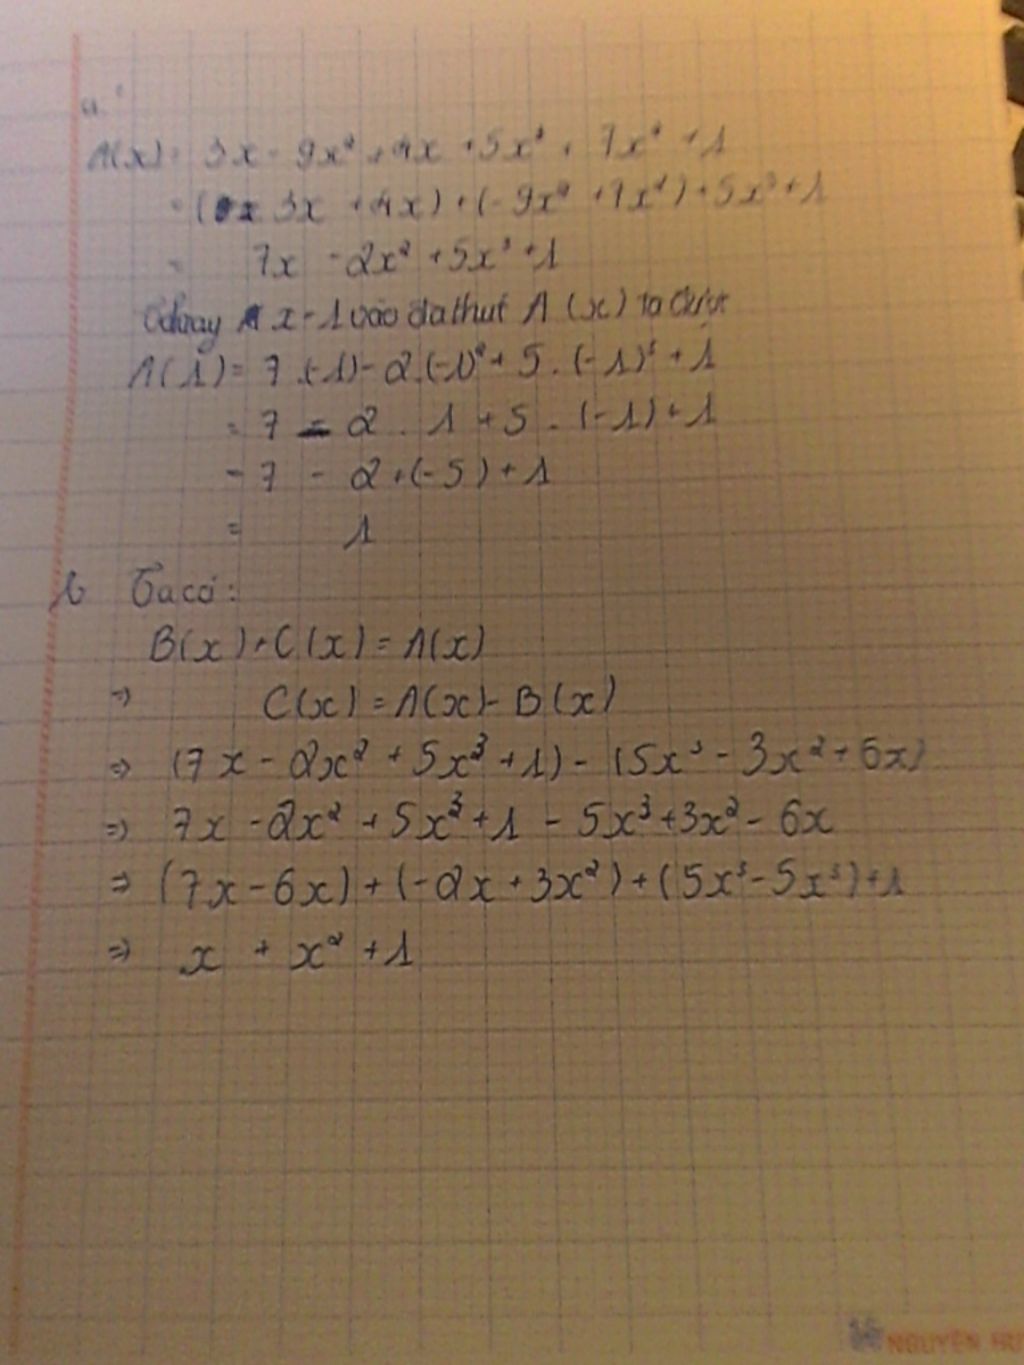 a.
A(x) = 3x - 9x² + 4x + 5x³ + 7x² + 1
= ( 3x + 4x) + (-9x² + 7x²) + 5x³ + 1
= 7x - 2x² + 5x³ + 1
x = -1 vào đa thưt A (x) ta được
A(1) = 7 .(-1) - 2.(-1)² + 5 . (-1)³ + 1
= 7 - 2 . 1 + 5 . (-1) + 1
= 7 - 2 + (-5) + 1
= 1
b Ta có :
B(x) + C(x) = A(x)
=> C(x) = A(x) - B(x)
=> (7x - 2x² + 5x³ + 1) - (5x³ - 3x² + 6x)
=> 7x - 2x² + 5x³ + 1 - 5x³ + 3x² - 6x
=> (7x - 6x) + (-2x + 3x²) + (5x³ - 5x³) + 1
=> x + x² + 1
NGUYÊN